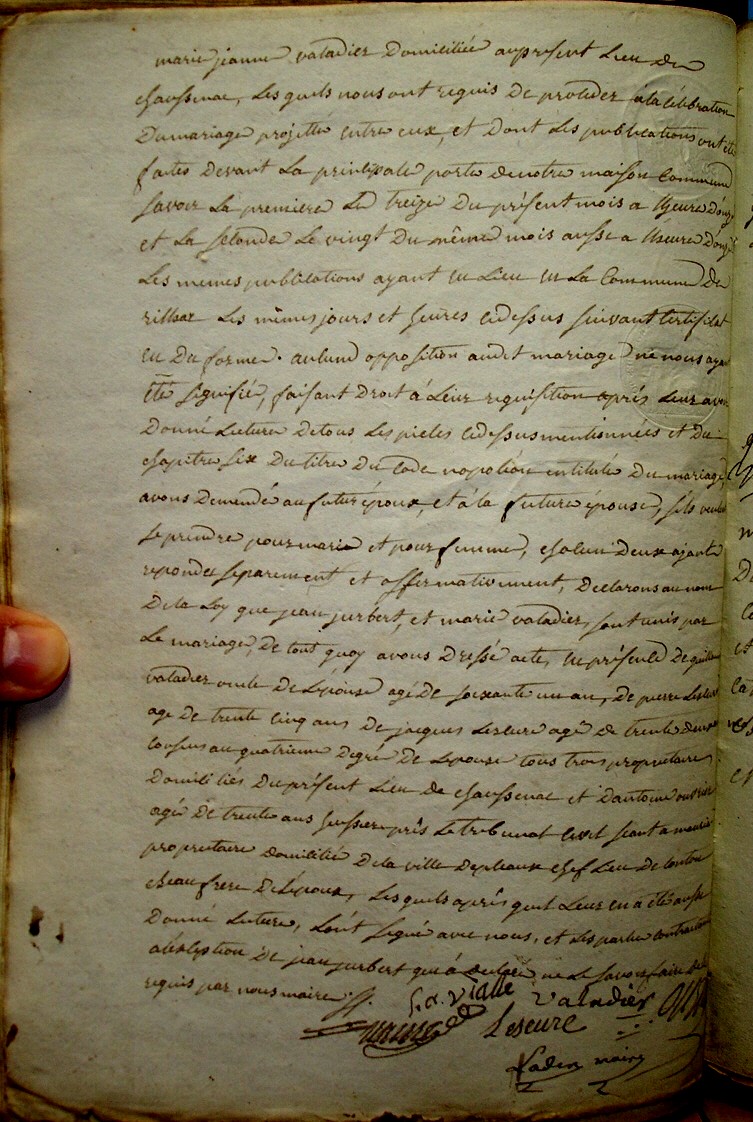 marie jeanne valadier domiciliée au present lieu de
chaussenac, lesquels nous ont requis de proceder a la célébration
du mariage projetté entre eux, et dont les publications ont été
faites devant la principale porte de notre maison commune
savoir la premiere le treize du présent mois a heure d'onze
et la seconde le vingt du même mois aussi a heure d'onze
les memes publications ayant eu lieu en la commune de
rilhac les mêmes jours et heures cidessus suivant certificat
en du forme. aucune opposition audit mariage ne nous ayant
été signifié, faisant droit à leur requisition après leur avoir
donné lecture de tous les pieces cidessus mentionnées et du
chapitre six du titre du code napoléon intitulé du mariage,
avons demendé au futur époux, et à la future épouse, s'ils veulent
se prendre pour marie et pour femme, chacun deux ayant
repondu separement et affirmativement, declarons au nom
de la loy que jean jurbert, et marie valadier, sont unis par
le mariage, de tout quoy avons dressé acte, en présence de
valadier oncle de l'épouse agé de soixante un an, de pierre lescure
age de trente cinq ans de jacques lescure agé de trente deux
cousins au quatrieme degré de l'epouse tous trois propriétaires
domiciliés du présent lieu de chaussenac et d'antoine
agé de trente ans huissier près le tribunal civil séant a mauriac
propriétaire domicilié de la ville de pleaux chef lieu de canton
beau frere de l'époux, lesquels après quil leur en a été aussi
donné lecture, l'ont signé avec nous, et les parties contractantes
a l'exception de jean jurbert qui à declaré ne le savoir faire de ce
requis par nous maire.
valadier
Lescure
maire